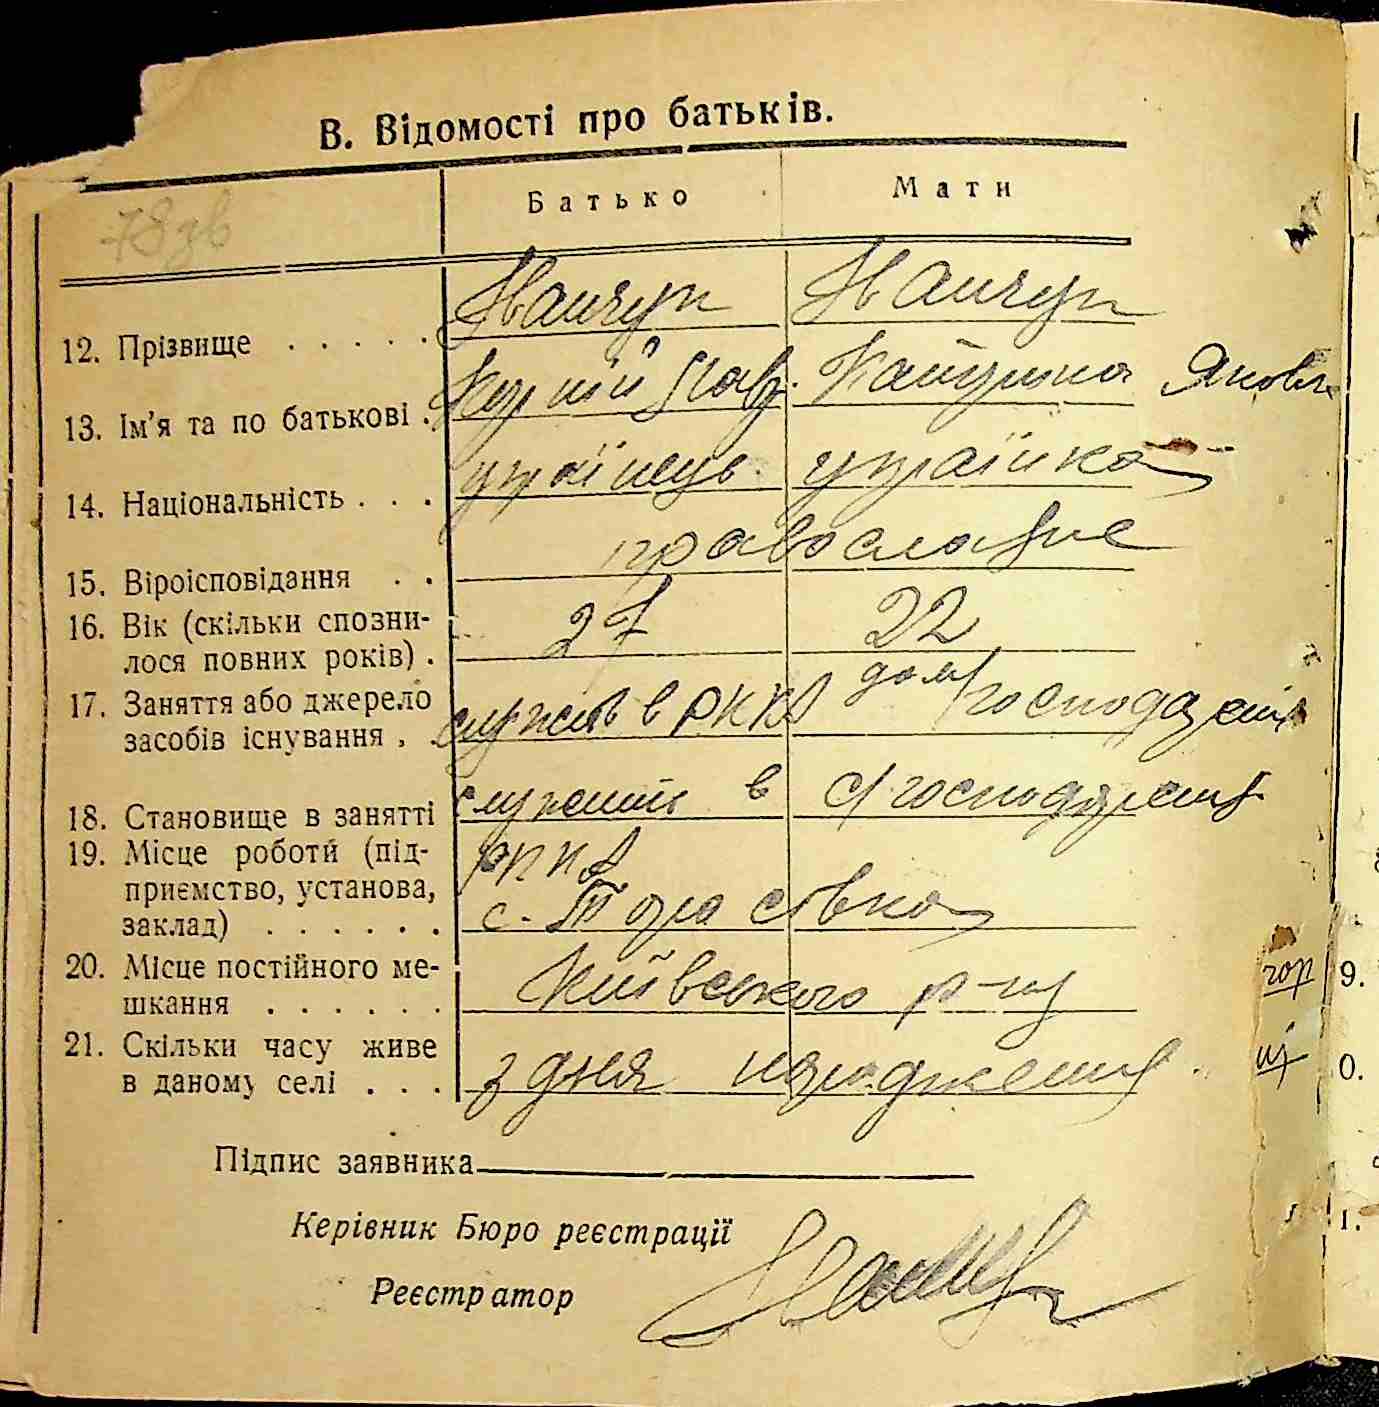 В. Відомості про батьків.
78 зв
Батько Мати
12. Прізвище . . . . . Іванчук Іванчук
13. Ім'я та по батькові . Юрій Катерина Яковл
14. Національність . . . українець українка
15. Віроісповідання . . православне
16. Вік (скільки спозни-
лося повних років) . 27 22
17. Заняття або джерело дом/господарст
засобів існування . . служив в РККА
18. Становище в занятті служить в с/господарст
19. Місце роботи (під- РККА
приємство, установа,
заклад) . . . . . . с. Тарасівка
20. Місце постійного ме- Київського р-ну
шкання . . . . . .
21. Скільки часу живе
в даному селі . . . з дня народження
Підпис заявника
Керівник Бюро реєстрації
Реєстратор
9.
0.
1.